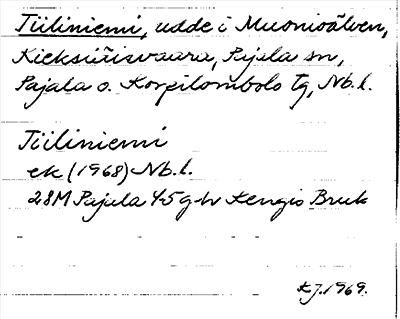 Tiiliniemi, udde i Muonioälven,
Kieksiäisvaara, Pajala sn,
Pajala o. Korpilombolo tg, Nb. l.
Tiiliniemi
ek (1968) Nb. l.
28M Pajala 4-5 g-h Kengis Bruk
KJ. 1969.